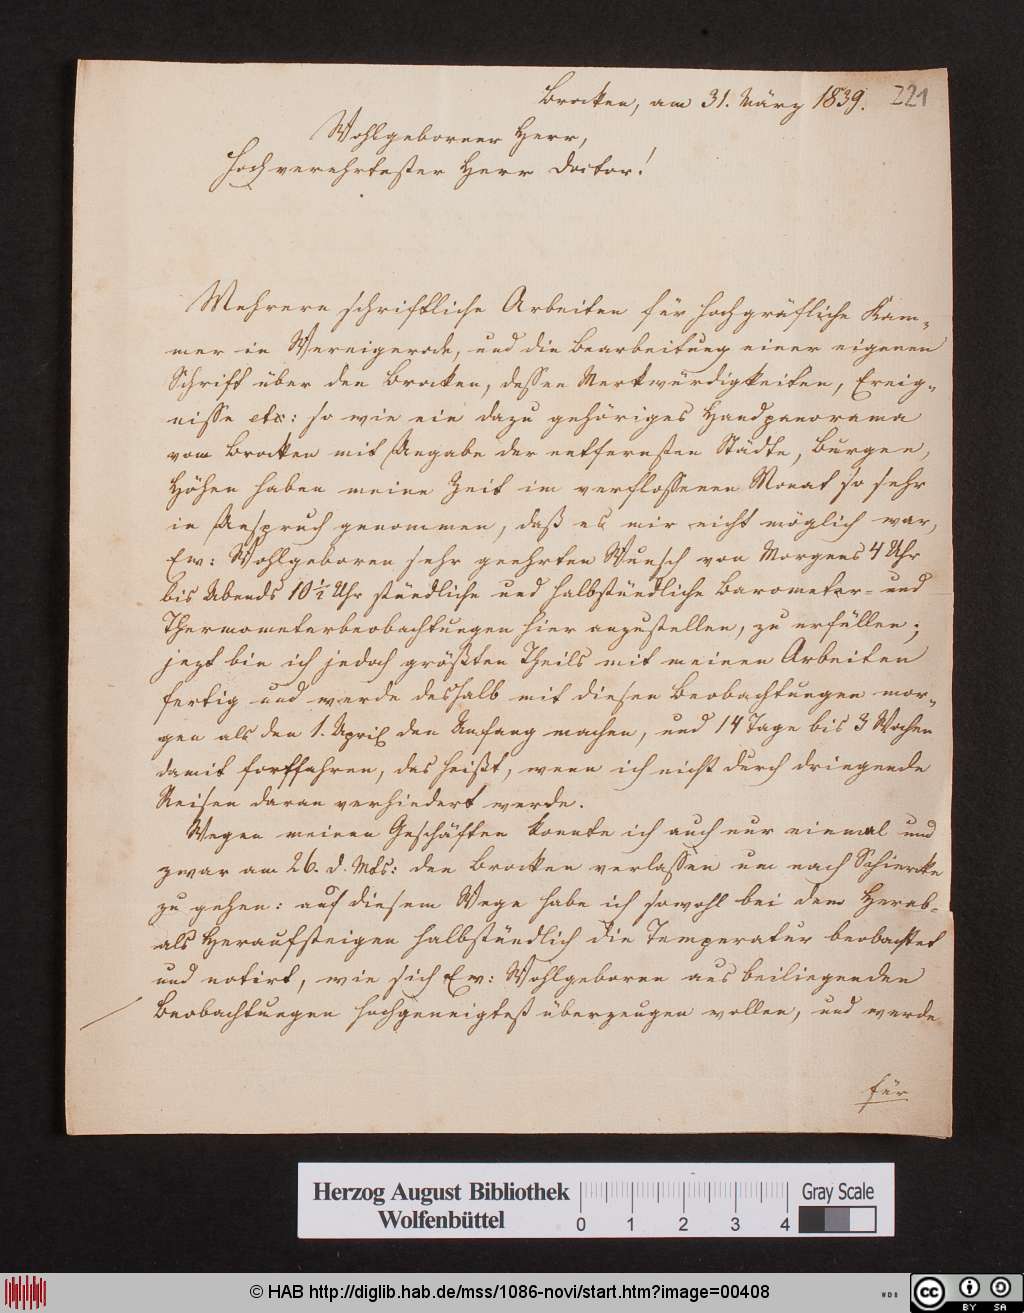 Brocken, am 31. März 1839.
221
Wohlgeborner Herr,
Hochverehrtester Herr Doctor!
Mehrere schriftliche Arbeiten für hochgräfliche Kam-
mer in Wernigerode, und die Bearbeitung einer eigenen
Schrift über den Brocken, dessen Merkwürdigkeiten, Ereig-
nisse etc: so wie ein dazu gehöriges Handpanorama
vom Brocken mit Angabe der entferntesten Städte, Burgen,
Höhen haben meine Zeit im verflossenen Monat so sehr
in Anspruch genommen, daß es mir nicht möglich war,
Ew: Wohlgeboren sehr geehrten Wunsch von Morgens 4 Uhr
bis Abends 10½ Uhr stündliche und halbstündliche Barometer- und
Thermometerbeobachtungen hier anzustellen, zu erfüllen;
jezt bin ich jedoch größten Theils mit meinen Arbeiten
fertig und werde deshalb mit diesen Beobachtungen mor-
gen als den 1. April den Anfang machen, und 14 Tage bis 3 Wochen
damit fortfahren, das heißt, wenn ich nicht durch dringende
Reisen daran verhindert werde.
Wegen meinen Geschäften konnte ich auch nur einmal und
zwar am 26. d. Mts: den Brocken verlassen um nach Schiercke
zu gehen: auf diesem Wege habe ich sowohl bei dem Herab-
als Heraufsteigen halbstündlich die Temperatur beobachtet
und notirt, wie sich Ew: Wohlgeboren aus beiliegenden
Beobachtungen hochgeneigtest überzeugen wollen, und werde
für
Herzog August Bibliothek
Wolfenbüttel
0 1 2 3 4
Gray Scale
© HAB http://diglib.hab.de/mss/1086-novi/start.htm?image=00408
WDB
cc BY SA